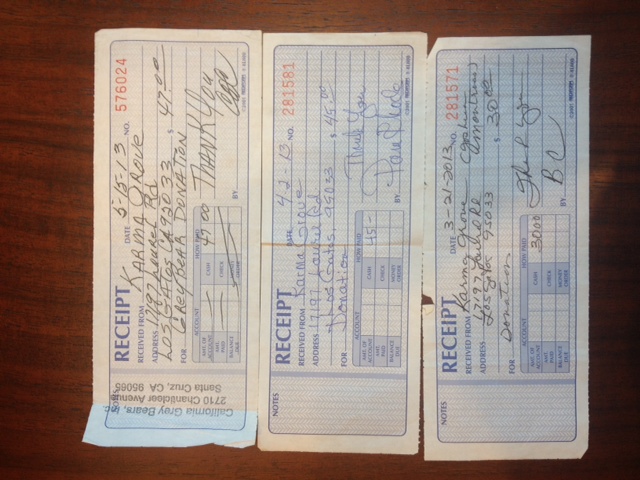 California Grey Bears, Inc.
2710 Chanticleer Avenue
Santa Cruz, CA 95065
RECEIPT DATE 5-15-13 NO. 576024
RECEIVED FROM KARMA GROVE
ADDRESS 17197 Laurel Rd
LOS GATOS CA 92033 $ 47.00
FOR GREY BEAR DONATION
THANK YOU
ACCOUNT HOW PAID
AMT. OF ACCOUNT CASH 47 00
AMT. PAID CHECK
BALANCE DUE MONEY ORDER
BY
NOTES RECEIPT DATE 4-2-13 NO. 281581
RECEIVED FROM Karma Grove
ADDRESS 17197 Laurel Rd
Los Gatos, 95033 $ 45.00
FOR Donation
Thank You
ACCOUNT HOW PAID
AMT. OF ACCOUNT CASH 45-
AMT. PAID CHECK
BALANCE DUE MONEY ORDER
BY
NOTES RECEIPT DATE 3-21-2013 NO. 281571
RECEIVED FROM Karma Grove
ADDRESS 17197 Laurel Rd
Los Gatos 95033 $ 30.00
FOR Donation
ACCOUNT HOW PAID
AMT. OF ACCOUNT CASH 30 00
AMT. PAID CHECK
BALANCE DUE MONEY ORDER
BY BC